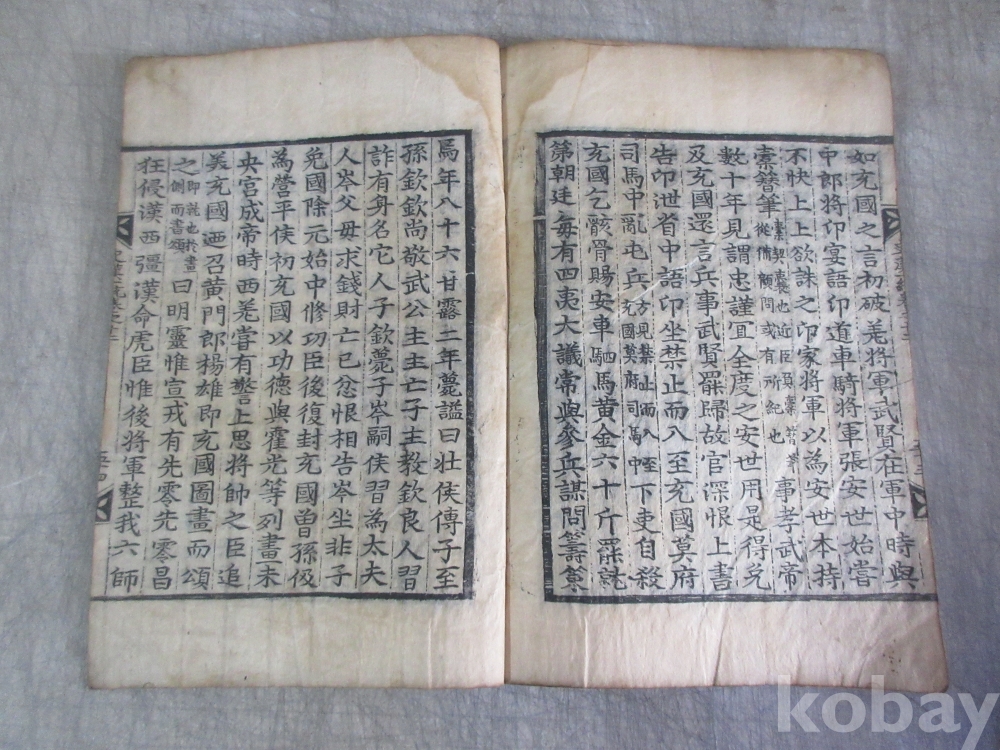 如充國之言初破羌將軍武賢在軍中時與
中郎將卬宴語卬道車騎將軍張安世始嘗
不快上上欲誅之卬家將軍以為安世本持
橐簪筆橐契囊也近臣負橐簪筆從備顧問或有所紀也事孝武帝
數十年見謂忠謹宜全度之安世用是得免
及充國還言兵事武賢罷歸故官深恨上書
告卬泄省中語卬坐禁止而入至充國莫府
司馬中亂屯兵方見禁止而入至充國莫府司馬中下吏自殺
充國乞骸骨賜安車駟馬黃金六十斤罷就
第朝廷每有四夷大議常與參兵謀問籌策
焉年八十六甘露二年薨謚曰壯侯傳子至
孫欽欽尚敬武公主主亡子主教欽良人習
詐有身名它人子欽薨子岑嗣侯習為太夫
人岑父母求錢財亡已忿恨相告岑坐非子
免國除元始中修功臣後復封充國曾孫伋
為營平侯初充國以功德與霍光等列畫未
央宮成帝時西羌嘗有警上思將帥之臣追
美充國迺召黃門郎揚雄即充國圖畫而頌
之即就也於畫側而書頌曰明靈惟宣戎有先零先零昌
狂侵漢西彊漢命虎臣惟後將軍整我六師
kobay